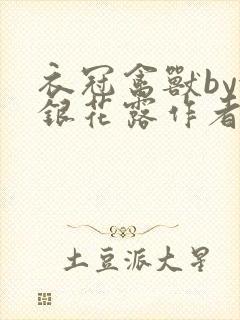 衣冠禽獸by
銀花露作者
土豆派大星